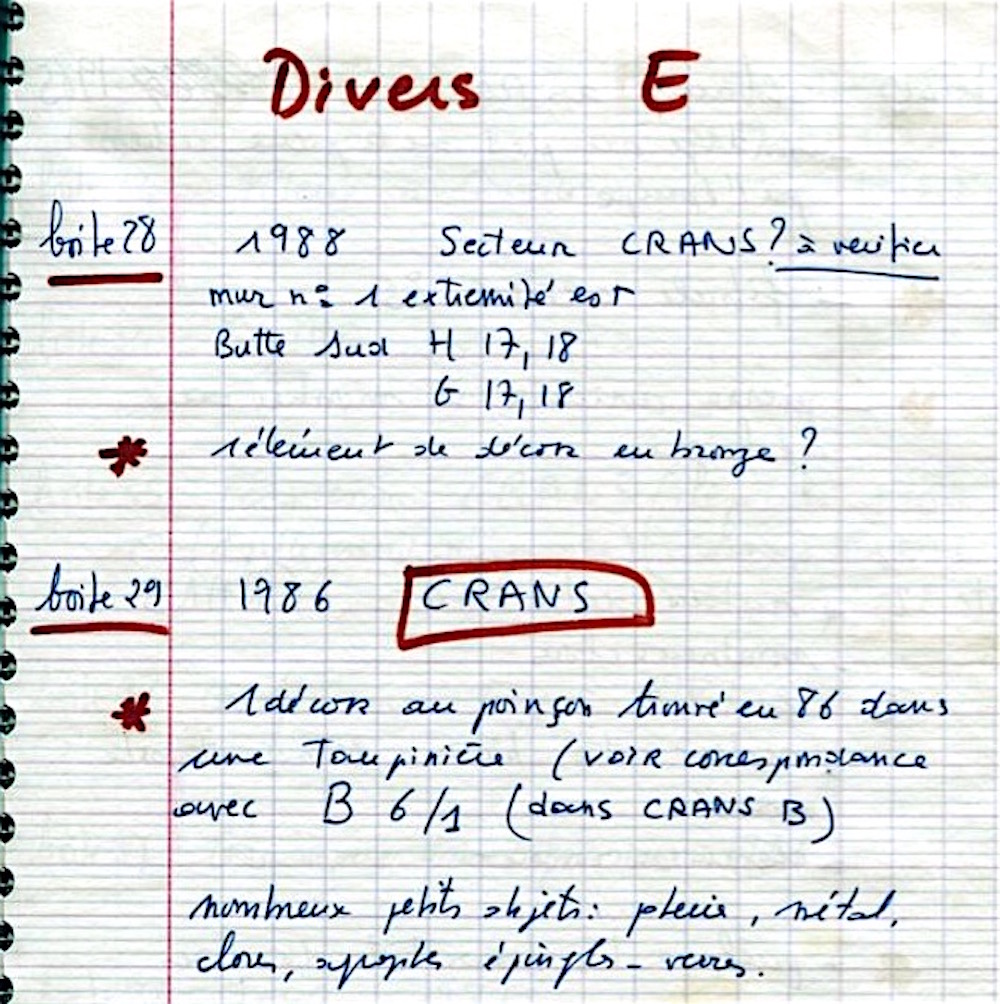 Divers E
boite 28 1988 Secteur CRANS? à verifier
mur n° 1 extremité est
Butte Sud H 17, 18
G 17, 18
* 1 élément de décor en bronze ?
boite 29 1986 CRANS
* 1 décor au poinçon trouvé en 86 dans
une Taupinière (voir correspondance
avec B 6/1 (dans CRANS B)
nombreux petits objets: , métal,
clous, épingles - verres.